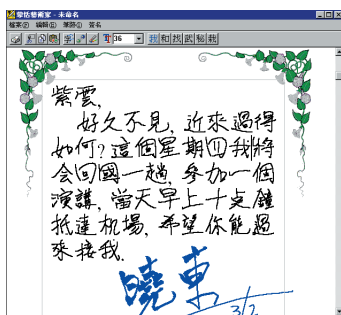 蒙恬藝術家 - 未命名
檔案(F) 編輯(E) 筆跡(I) 簽名
36 我和找武秘栽
紫雲,
好久不見, 近來過得
如何? 這個星期四我將
会回國一趟, 參加一個
演講, 當天早上十点鐘
抵達机場, 希望你能過
來接我.
曉東
3/2